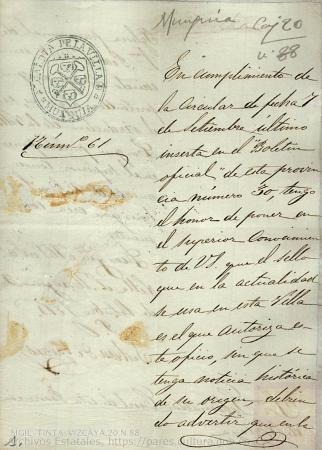 Munguia
Caj 20
n. 88
ALCALDIA DE LA VILLA DE MUNGUIA
Núm.º 61
En cumplimiento de
la Circular de fecha 7
de Setiembre último
inserta en el "Boletin
oficial" de esta provin
cia número 30, tengo
el honor de poner en
el superior Conocimien
to de V.S. que el sello
que en la actualidad
se usa en esta Villa
es el que autoriza es
te oficio, sin que se
tenga noticia histórica
de su origen, debien
do advertir que en la
SIGIL-TINTA-VIZCAYA,20,N.88
Archivos Estatales, https://pares.cultura.